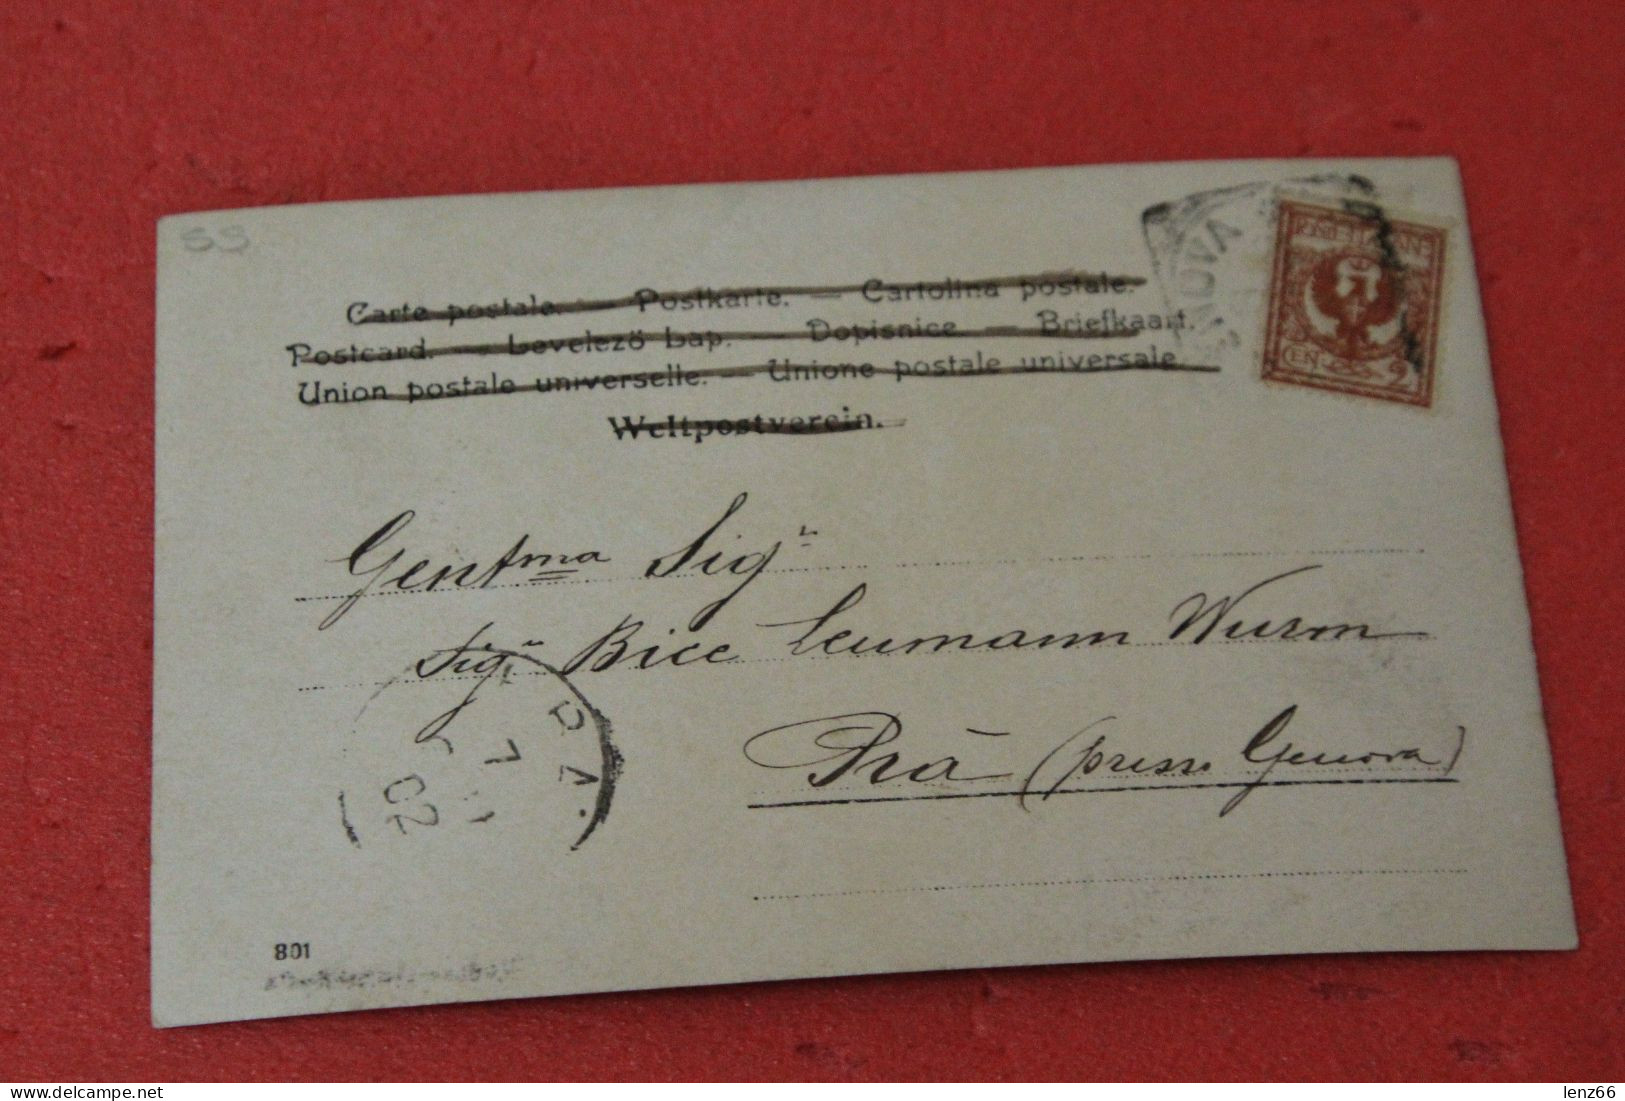 SS
Carte postale. — Postkarte. — Cartolina postale.
Postcard. — Levelező Lap. — Dopisnice. — Briefkaart.
Union postale universelle. — Unione postale universale.
Weltpostverein.
POSTE ITALIANE
CEN. 2
Gentma Sigra
Sigra Bice Leumann Wurm
Prà (presso Genova)
PRA
02
801
delcampe.net
lenz66